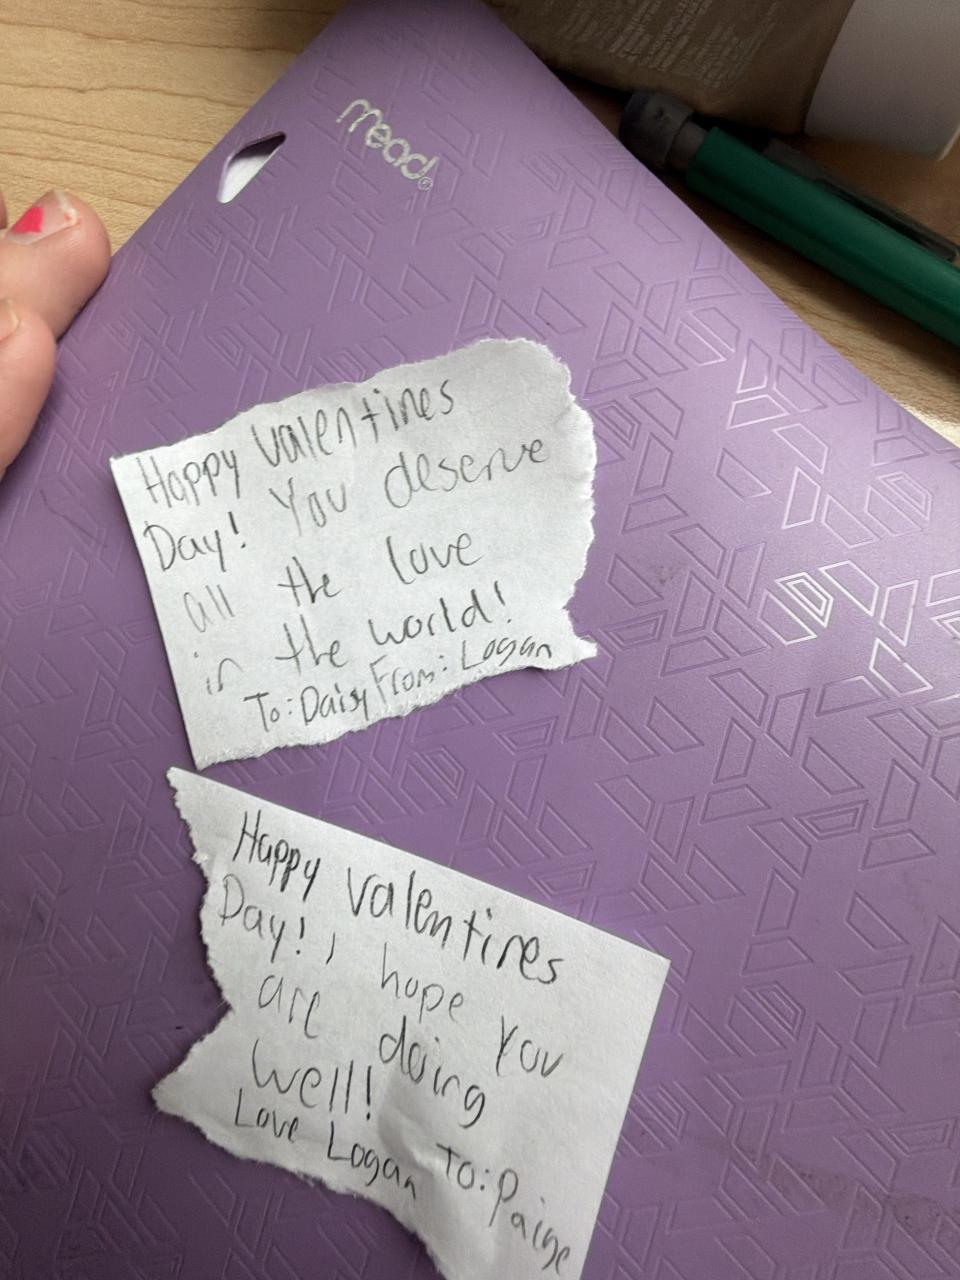 mead®
Happy Valentines
Day! You deserve
all the love
in the world!
To: Daisy From: Logan
Happy Valentines
Day! I hope You
are doing
Well!
Love Logan To: Paige